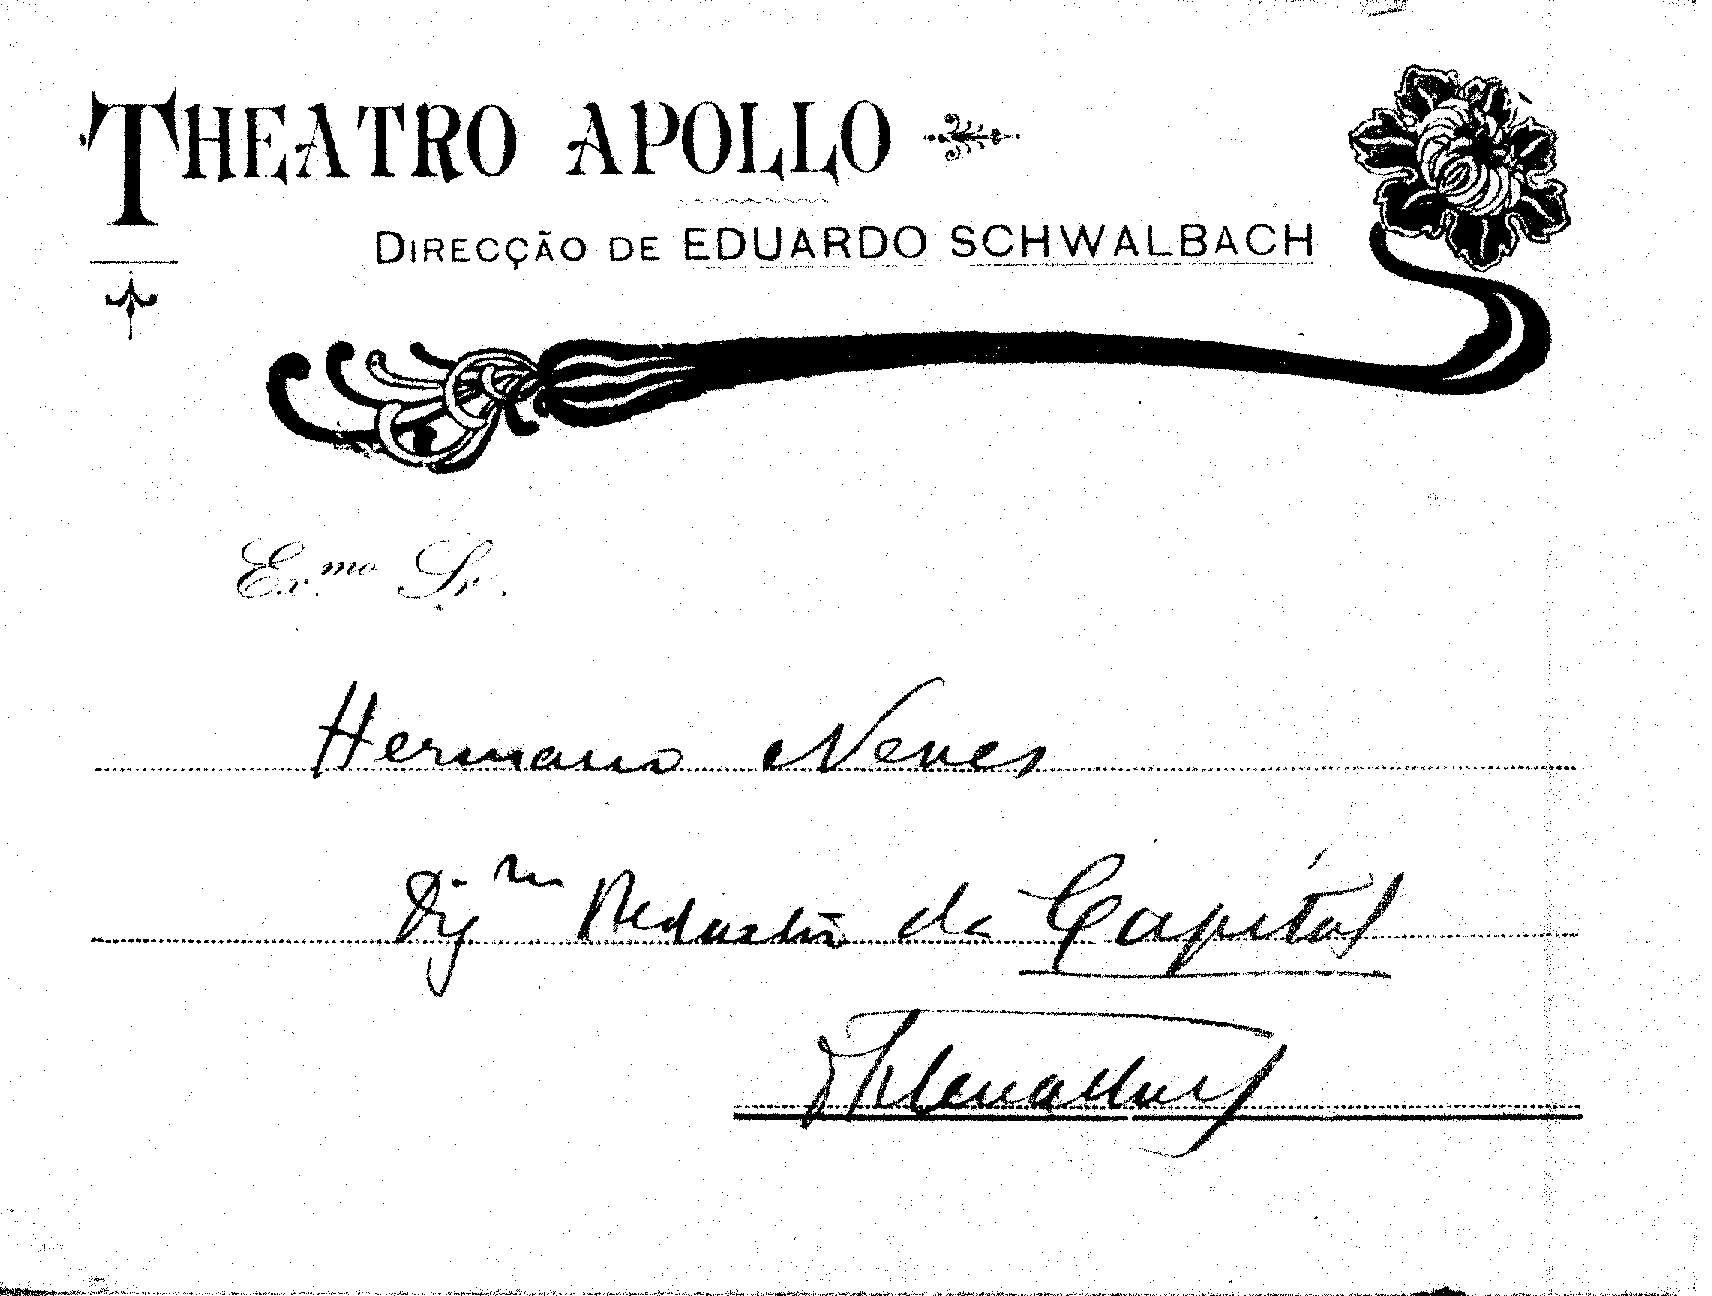 THEATRO APOLLO
DIRECÇÃO DE EDUARDO SCHWALBACH
Ex.mo Sr.
Hermano Neves
Dig.mo Redactor da Capital